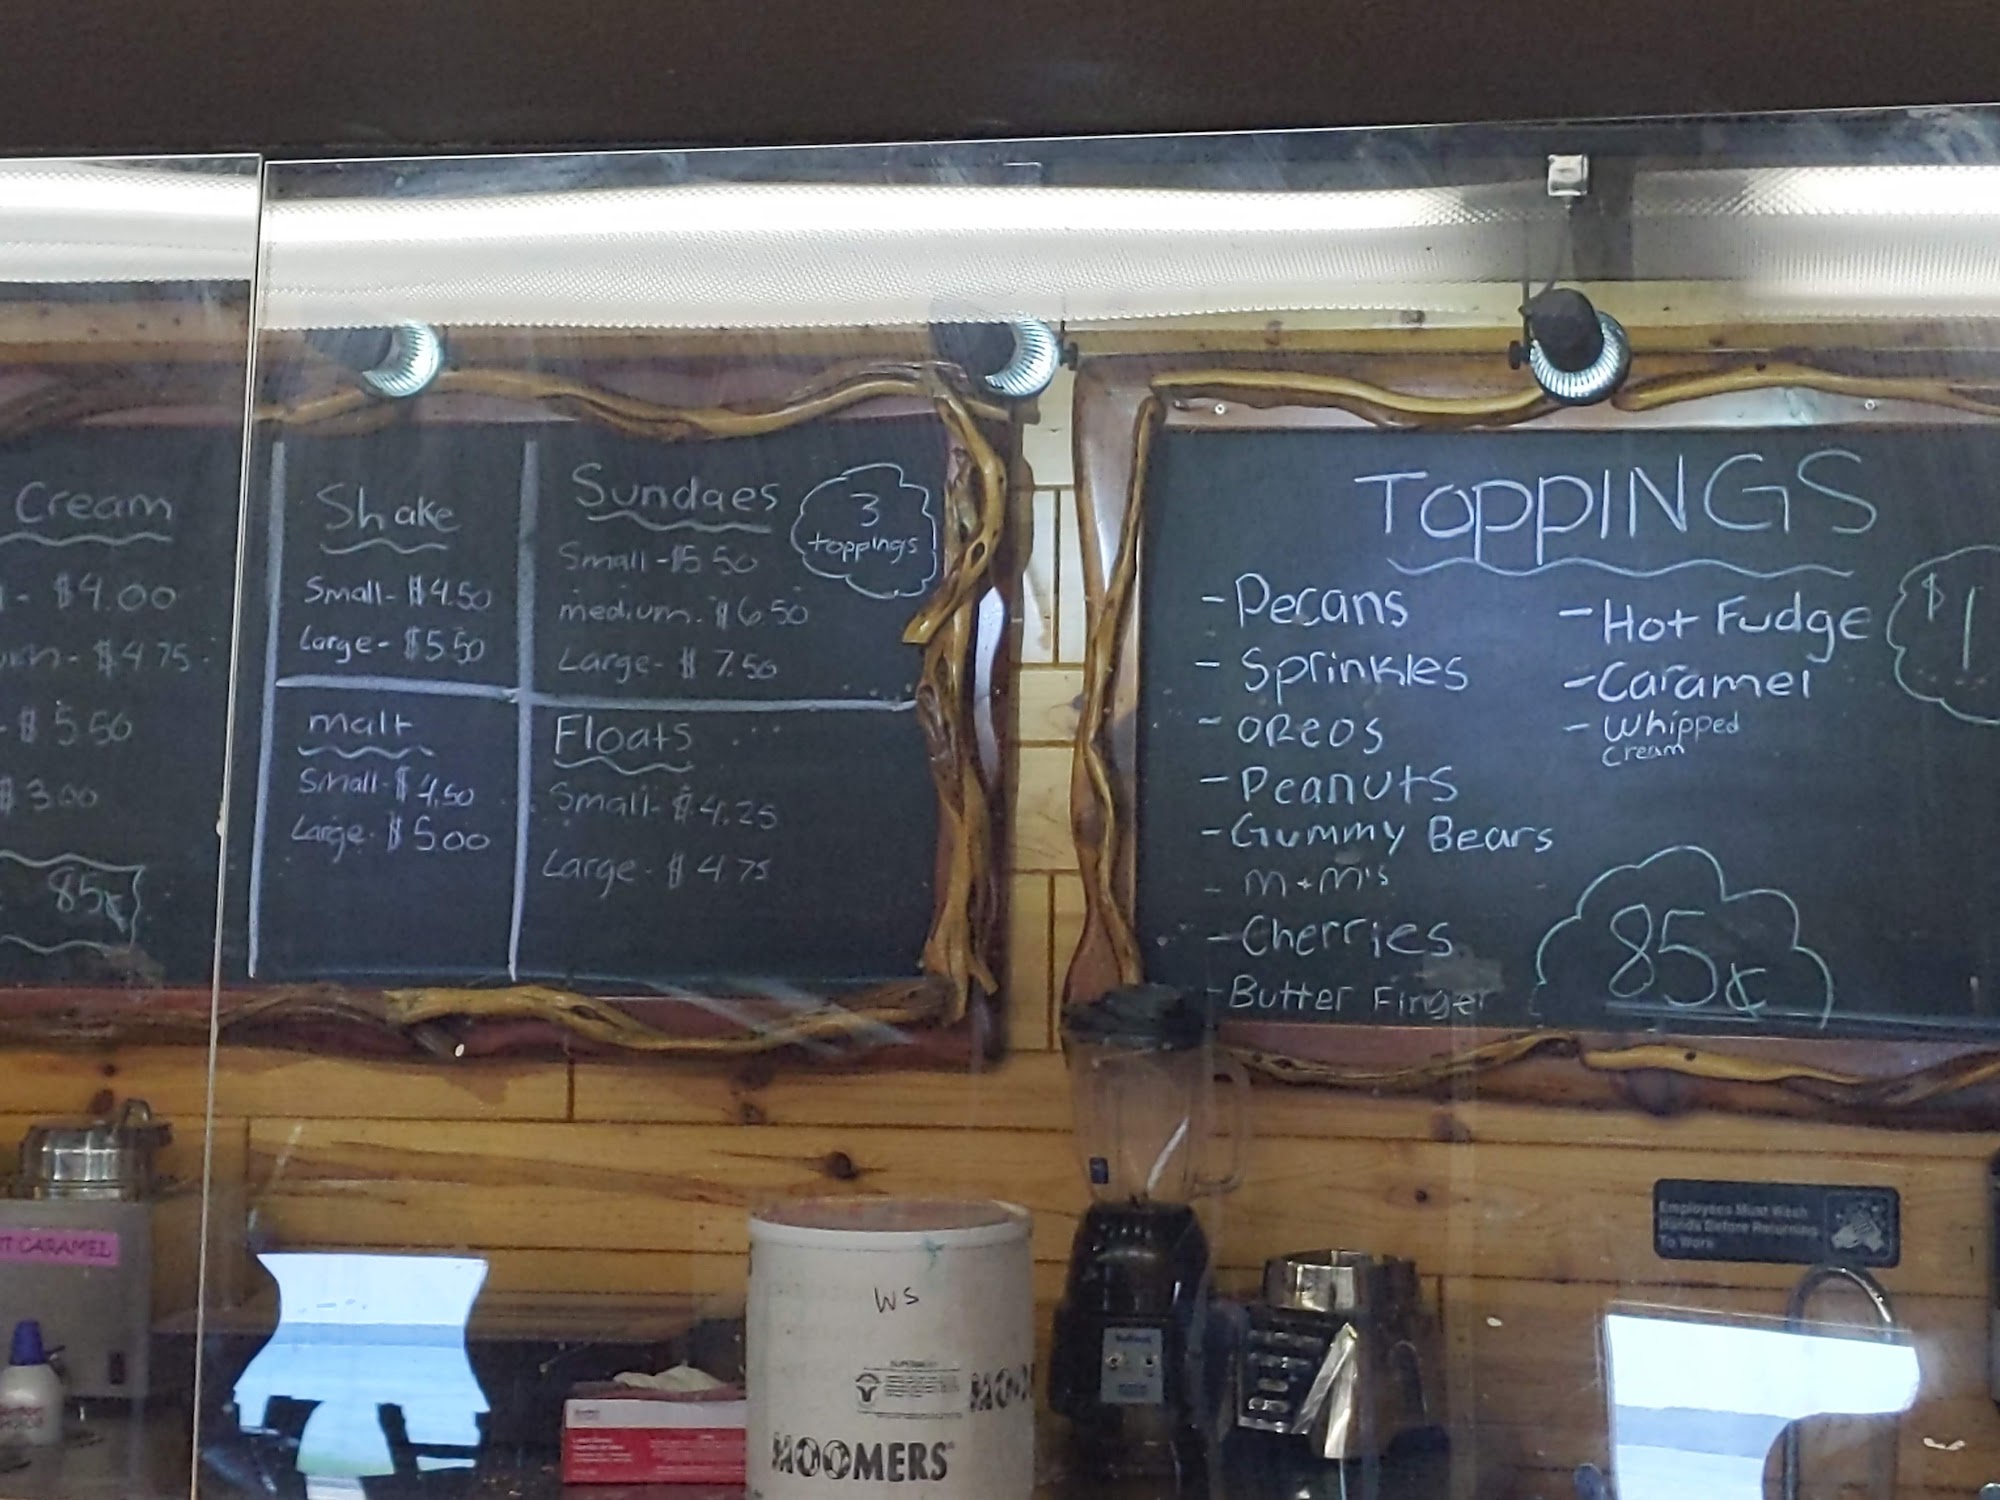 Cream
- $4.00
- $4.75
- $5.50
$3.00
85¢
Shake
Small- $4.50
Large- $5.50
malt
Small- $4.50
Large- $5.00
Sundaes
3
toppings
Small - $5.50
medium- $6.50
Large- $7.50
Floats
Small- $4.25
Large- $4.75
TOPPINGS
- Pecans
- Sprinkles
- OREOS
- Peanuts
- Gummy Bears
- M+M's
- Cherries
- Butter Finger
- Hot Fudge
- Caramel
- Whipped
Cream
$1
85¢
CARAMEL
WS
MOOMERS
Employees Must Wash
Hands Before Returning
To Work